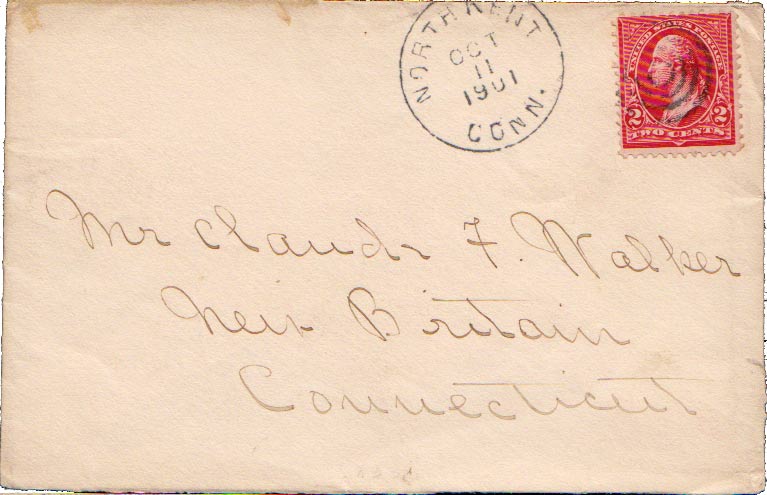 NORTH KENT
OCT
11
1901
CONN.
UNITED STATES POSTAGE
2 2
TWO CENTS
Mr Claude F. Walker
New Britain
Connecticut